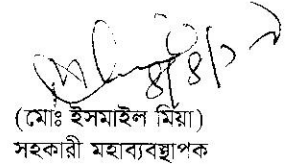 ৪/৪/১৯
(মোঃ ইসমাইল মিয়া)
সহকারী মহাব্যবস্থাপক